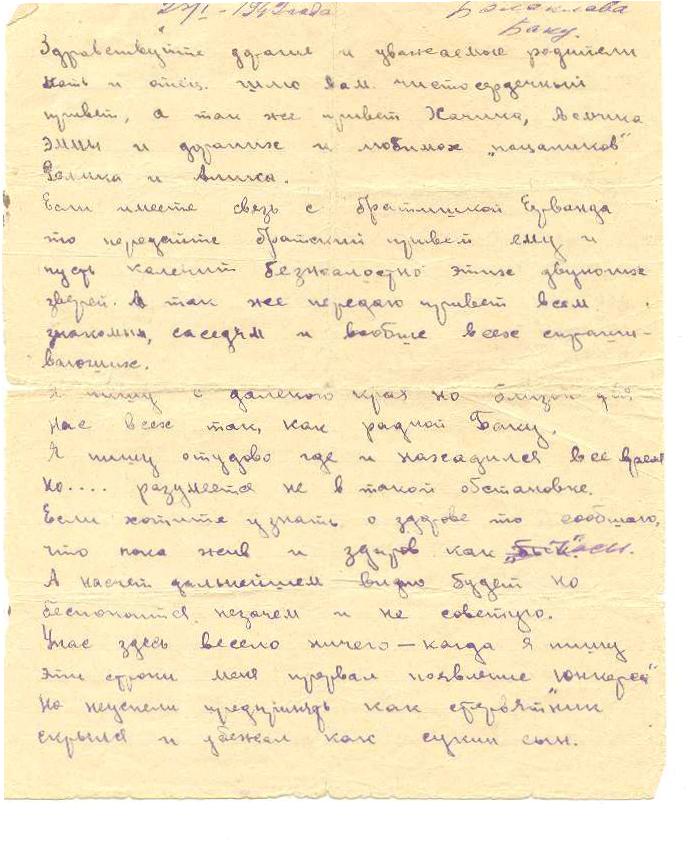 1942 года Балаклава
Баку.
Здравствуйте дорагия и уважаемые родители
мать и отец. шлю вам чистосердечный
привет, а так же привет Хачика,
Эммы и дорагих и любимах „пацаников"
и Алика.
Если имеете связь с братишкой Ерванда
то передайте братский привет ему и
пусть калечит безжалостно этих двуногих
зверей. А так же передаю привет всем
знакомым, саседям и вообще всех спраши-
вающих.
Я пишу с далекого края но близок для
нас всех так, как радной Баку.
Я пишу отудово где и нахадился все время
но.... разумеется не в такой обстановке.
Если хотите узнать о здарове то сообщаю,
что пока жив и здаров как
А насчет дальнейшем видно будет но
беспокоится незачем и не советую.
Унас здесь весело ничего — кагда я пишу
эти строки меня прервал появление „юнкерса"
но неуспели предпринядь как стервятник
скрылся и убежал как сукин сын.